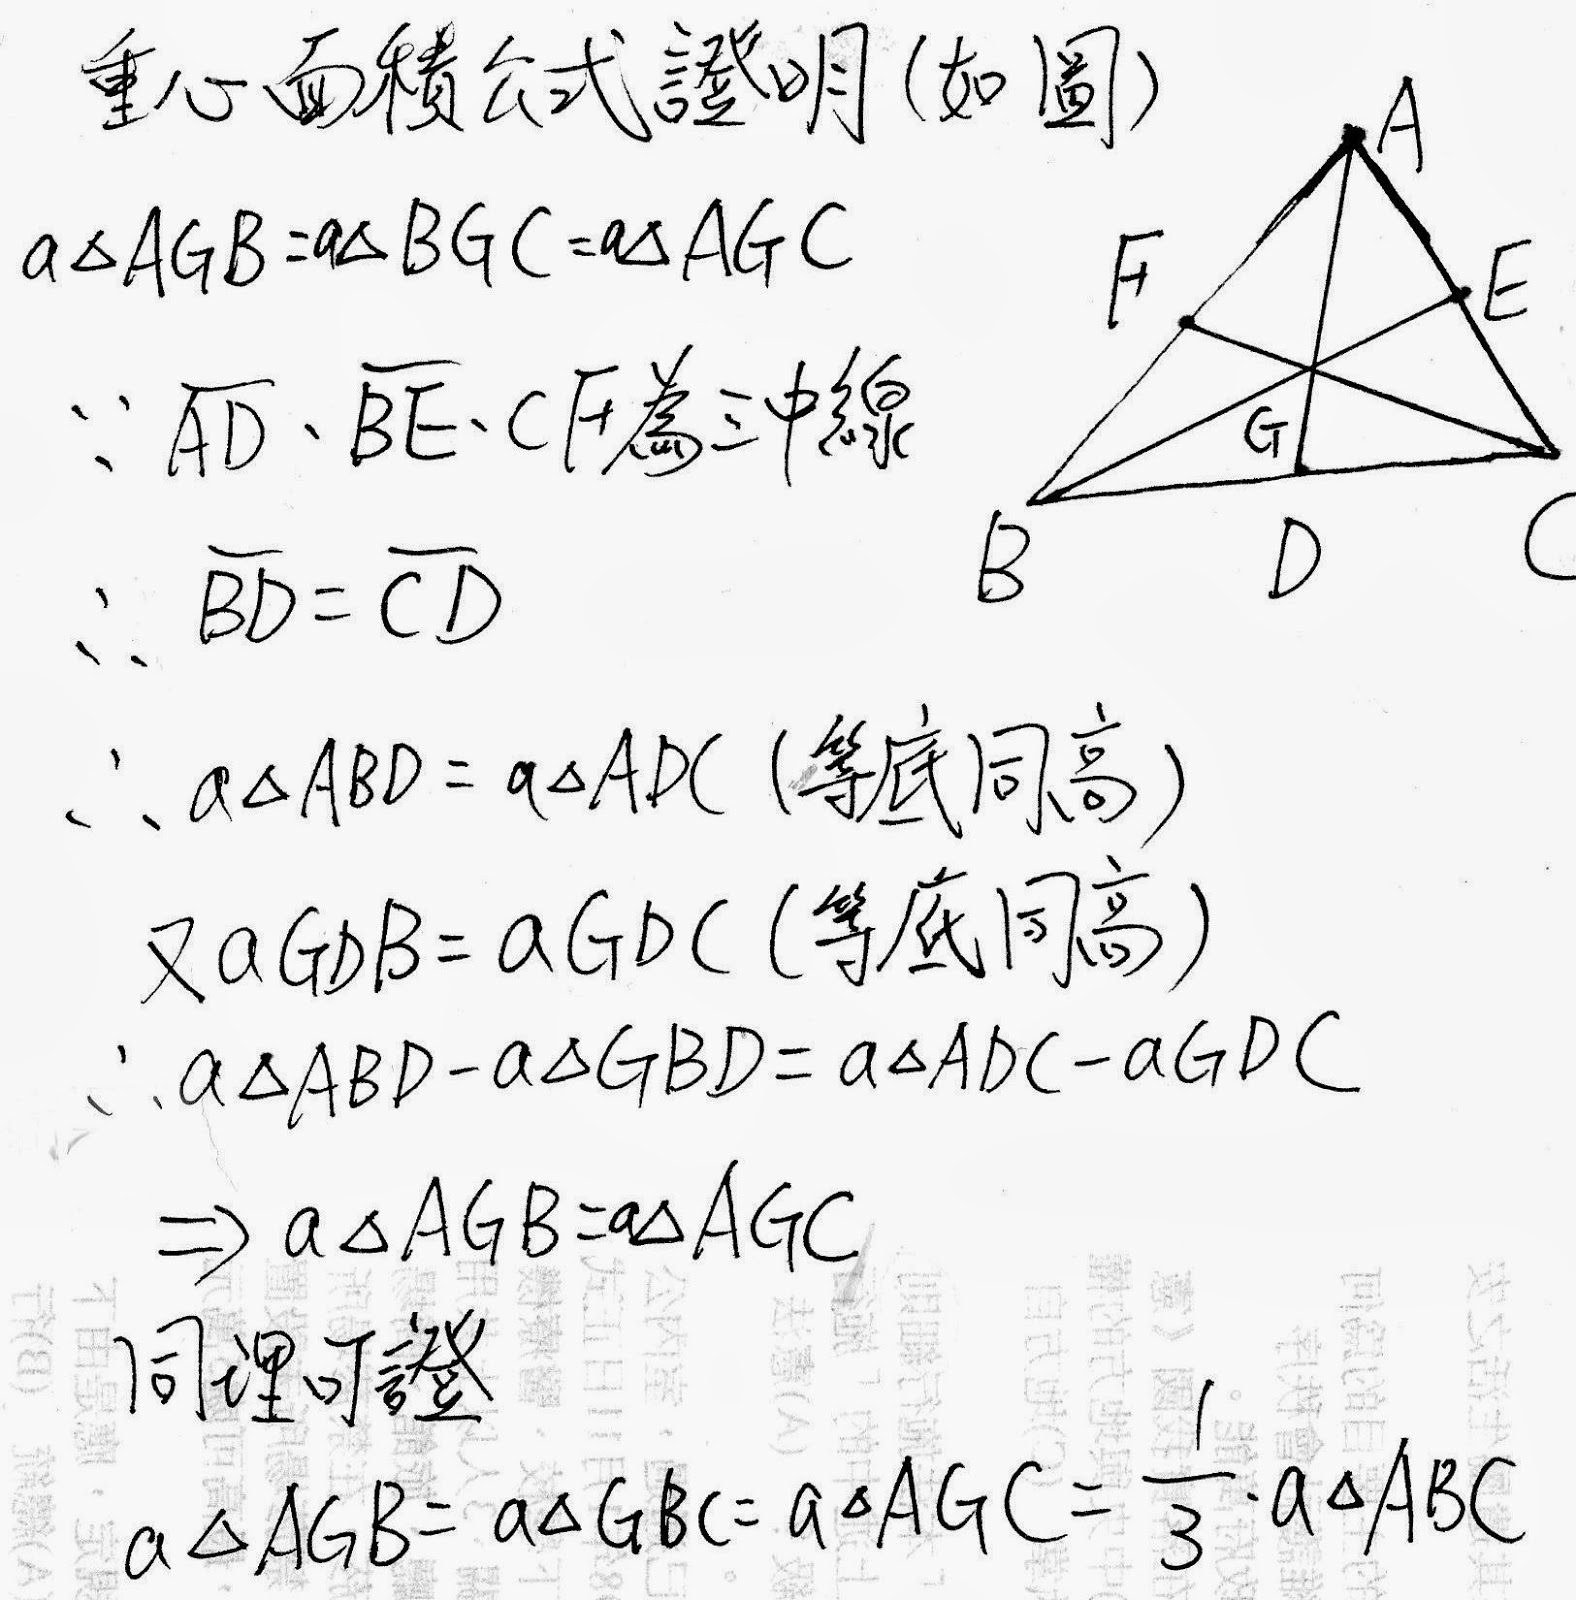 重心面積公式證明(如圖)
a△AGB=a△BGC=a△AGC
∵ AD、BE、CF為三中線
∴ BD=CD
∴ a△ABD=a△ADC (等底同高)
又aGDB=aGDC (等底同高)
∴ a△ABD-a△GBD=a△ADC-aGDC
⇒ a△AGB=a△AGC
同理可證
a△AGB=a△GBC=a△AGC=1/3·a△ABC
A
F
E
G
B
D
C